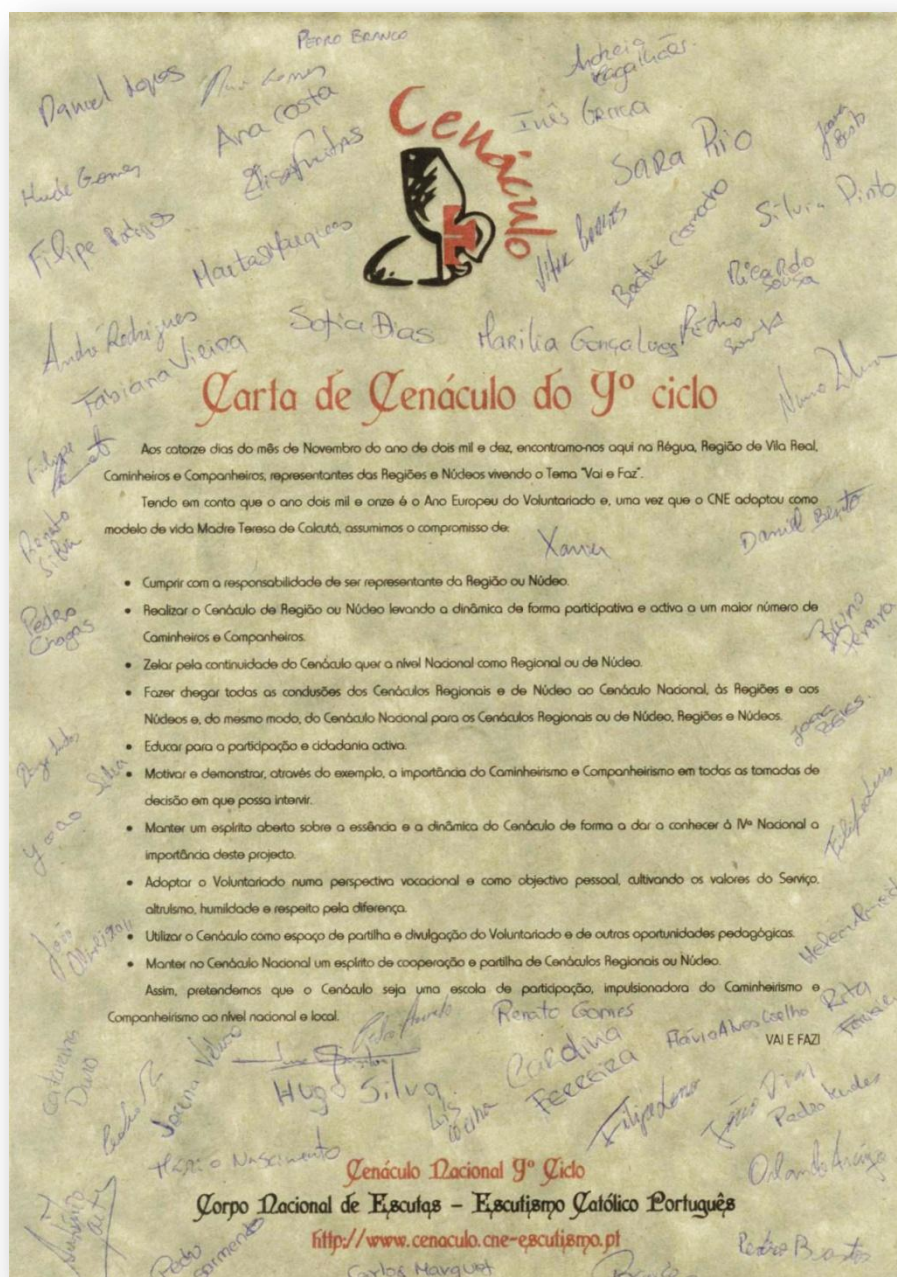 PEDRO BRANCO
Daniel Lopes
Ana Costa
Inês Garcia
Cenáculo
SARA RIO
Silvia Pinto
Filipe
Marta Marques
Beatriz
Ricardo Sousa
André Rodrigues
Sofia Dias
Marilia Gonçalves
Pedro Sousa
Fabiana Vieira
Nuno
Carta de Cenáculo do 9º ciclo
Aos catorze dias do mês de Novembro do ano de dois mil e dez, encontramo-nos aqui na Régua, Região de Vila Real,
Caminheiros e Companheiros, representantes das Regiões e Núcleos vivendo o Tema "Vai e Faz".
Tendo em conta que o ano dois mil e onze é o Ano Europeu do Voluntariado e, uma vez que o CNE adoptou como
modelo de vida Madre Teresa de Calcutá, assumimos o compromisso de:
Xavier
Daniel Bento
Renato Silva
Pedro Chagas
Bruno Pereira
• Cumprir com a responsabilidade de ser representante da Região ou Núcleo.
• Realizar o Cenáculo de Região ou Núcleo levando a dinâmica de forma participativa e activa a um maior número de
Caminheiros e Companheiros.
• Zelar pela continuidade do Cenáculo quer a nível Nacional como Regional ou de Núcleo.
• Fazer chegar todas as conclusões dos Cenáculos Regionais e de Núcleo ao Cenáculo Nacional, às Regiões e aos
Núcleos e, do mesmo modo, do Cenáculo Nacional para os Cenáculos Regionais ou de Núcleo, Regiões e Núcleos.
• Educar para a participação e cidadania activa.
• Motivar e demonstrar, através do exemplo, a importância do Caminheirismo e Companheirismo em todas as tomadas de
decisão em que possa intervir.
• Manter um espírito aberto sobre a essência e a dinâmica do Cenáculo de forma a dar a conhecer à IVª Nacional a
importância deste projecto.
• Adoptar o Voluntariado numa perspectiva vocacional e como objectivo pessoal, cultivando os valores do Serviço,
altruísmo, humildade e respeito pela diferença.
• Utilizar o Cenáculo como espaço de partilha e divulgação do Voluntariado e de outras oportunidades pedagógicas.
• Manter no Cenáculo Nacional um espírito de cooperação e partilha de Cenáculos Regionais ou Núcleo.
Assim, pretendemos que o Cenáculo seja uma escola de participação, impulsionadora do Caminheirismo e
Companheirismo ao nível nacional e local.
VAI E FAZ!
Renato Gomes
Flávio Alves Coelho
Rita
Catarina Duro
Hugo Silva
Carolina Ferreira
Luís Cunha
Filipe
João Dias
Pedro Mendes
Nascimento
Orlando Araújo
Cenáculo Nacional 9º Ciclo
Corpo Nacional de Escutas – Escutismo Católico Português
http://www.cenaculo.cne-escutismo.pt
Pedro Sarmento
Carlos Marques
Pedro